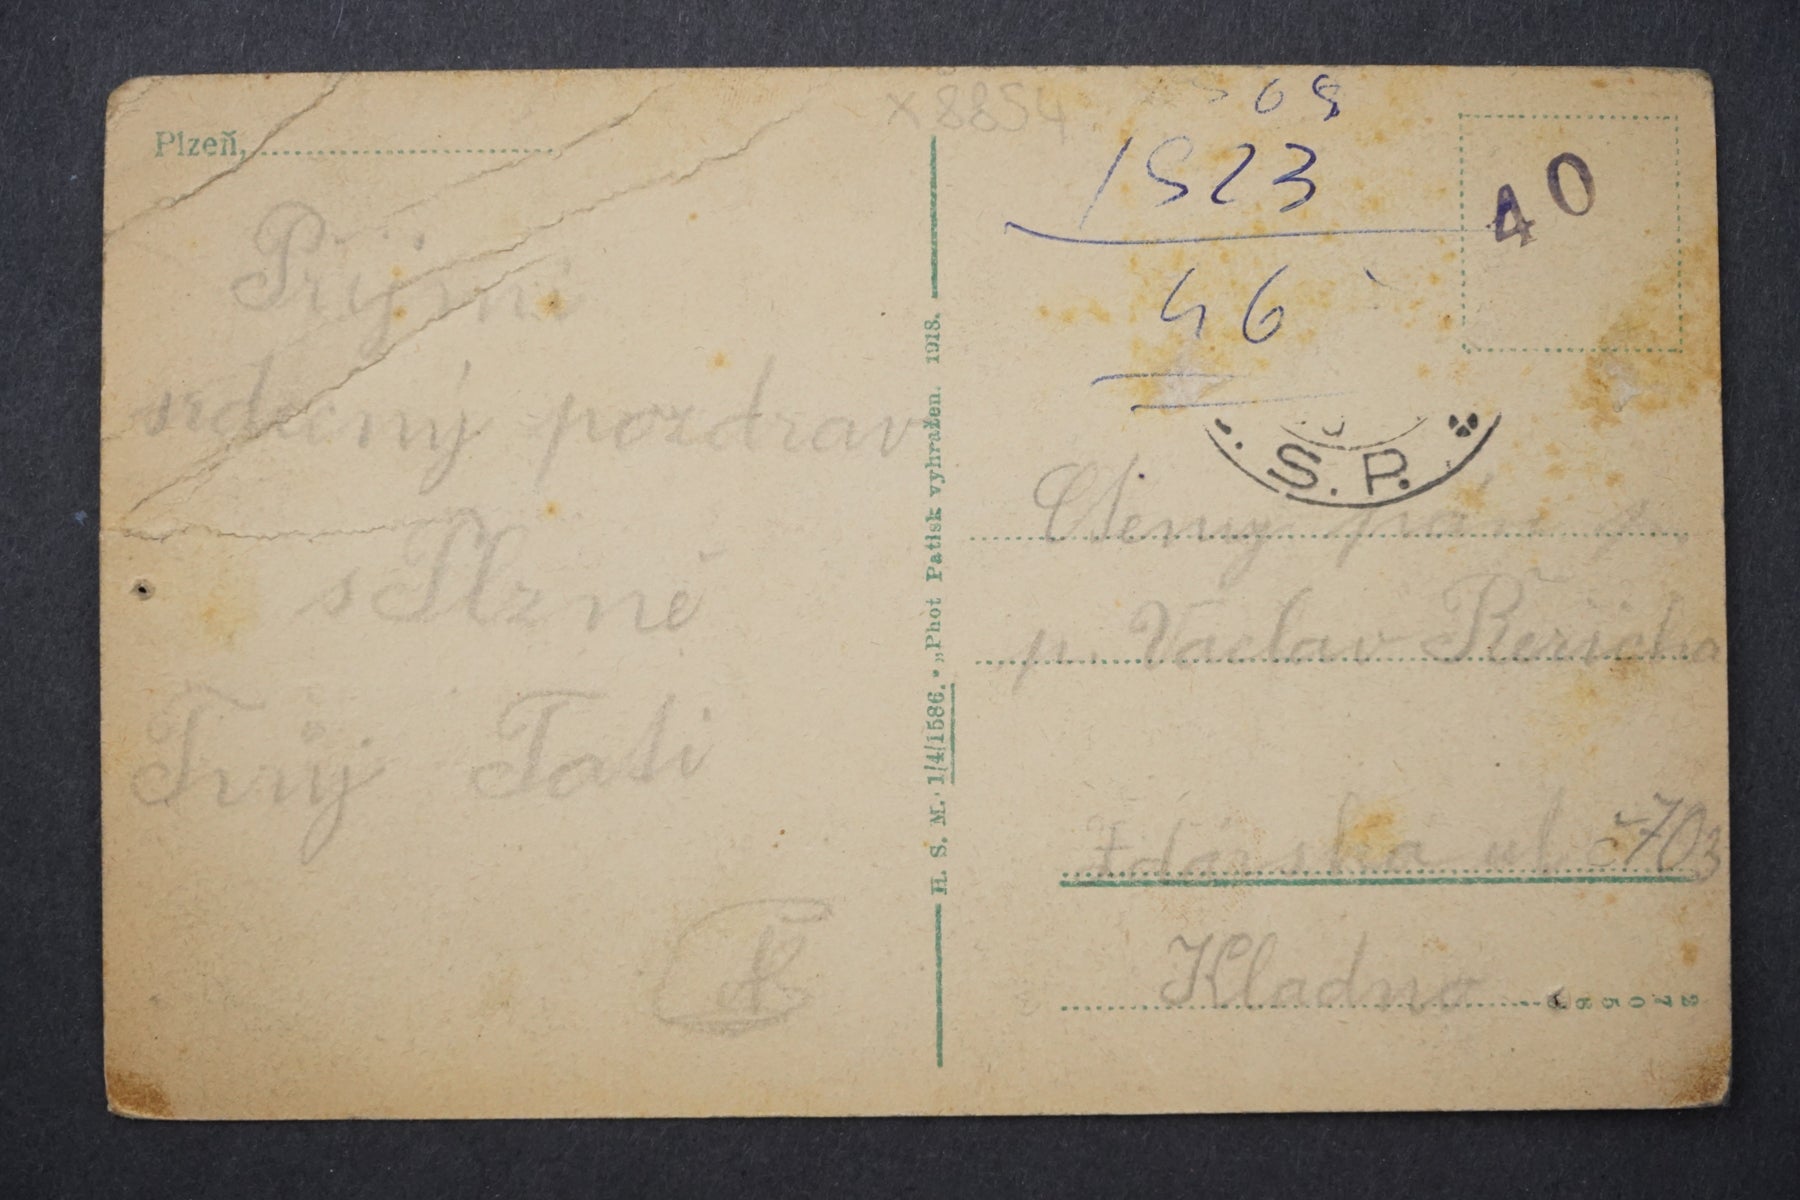 Plzeň,
Přijmi
srdečný pozdrav
s Plzně
Tvůj Tati
H. S. M. 1/4/1586. „Phot Patisk vyhražen. 1918.
x 8854
09
1923
46
40
S. P.
Ctěný pán p.
p. Václav Řeřicha
Žďárská ul. č 703
Kladno